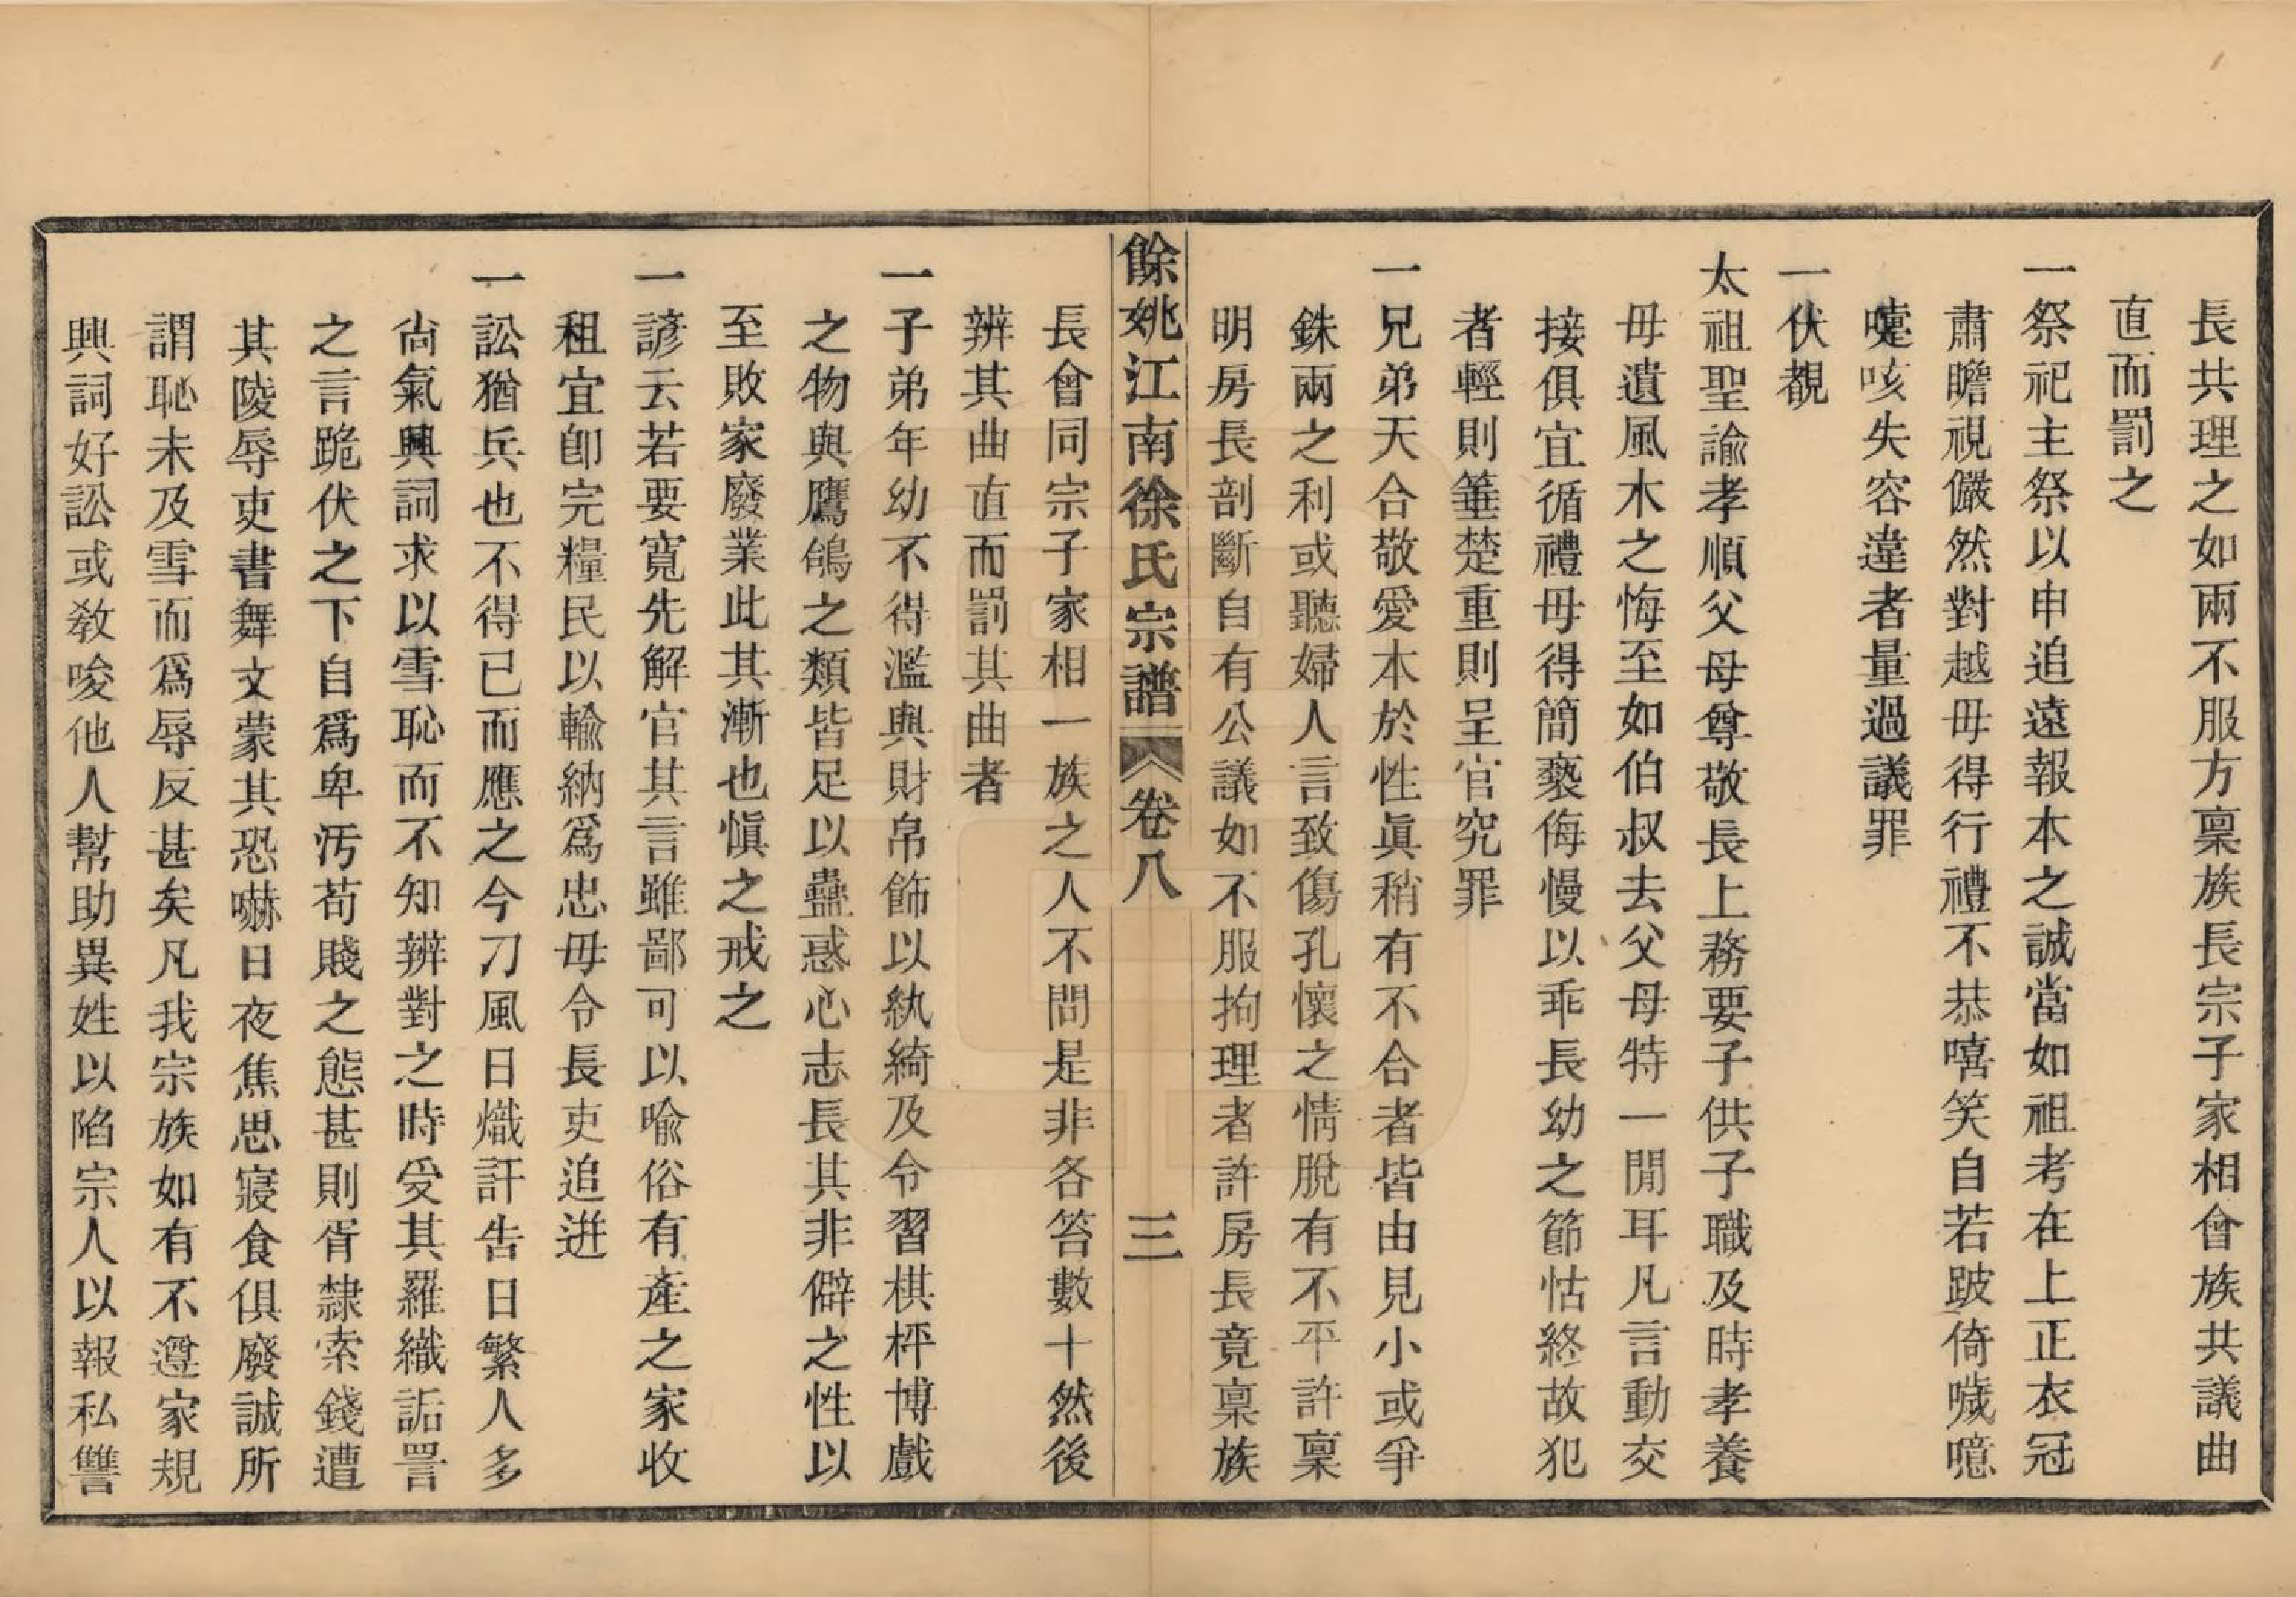 長共理之如兩不服方稟族長宗子家相會族共議曲
直而罰之
一祭祀主祭以申追遠報本之誠當如祖考在上正衣冠
肅瞻視儼然對越毋得行禮不恭嘻笑自若跛倚噦噫
嚏咳失容違者量過議罪
一伏覩
太祖聖諭孝順父母尊敬長上務要子供子職及時孝養
毋遺風木之悔至如伯叔去父母特一閒耳凡言動交
接俱宜循禮毋得簡褻侮慢以乖長幼之節怙終故犯
者輕則箠楚重則呈官究罪
一兄弟天合敬愛本於性眞稍有不合者皆由見小或爭
銖兩之利或聽婦人言致傷孔懷之情脫有不平許稟
明房長剖斷自有公議如不服拘理者許房長竟稟族
餘姚江南徐氏宗譜 卷八 三
長會同宗子家相一族之人不問是非各笞數十然後
辨其曲直而罰其曲者
一子弟年幼不得濫與財帛飾以紈綺及令習棋枰博戲
之物與鷹鴿之類皆足以蠱惑心志長其非僻之性以
至敗家廢業此其漸也愼之戒之
一諺云若要寬先解官其言雖鄙可以喻俗有產之家收
租宜卽完糧民以輸納爲忠毋令長吏追逬
一訟猶兵也不得已而應之今刀風日熾訐告日繁人多
尙氣興詞求以雪恥而不知辨對之時受其羅織詬詈
之言跪伏之下自爲卑汚苟賤之態甚則胥隸索錢遭
其陵辱吏書舞文蒙其恐嚇日夜焦思寢食俱廢誠所
謂恥未及雪而爲辱反甚矣凡我宗族如有不遵家規
興詞好訟或敎唆他人幫助異姓以陷宗人以報私讐